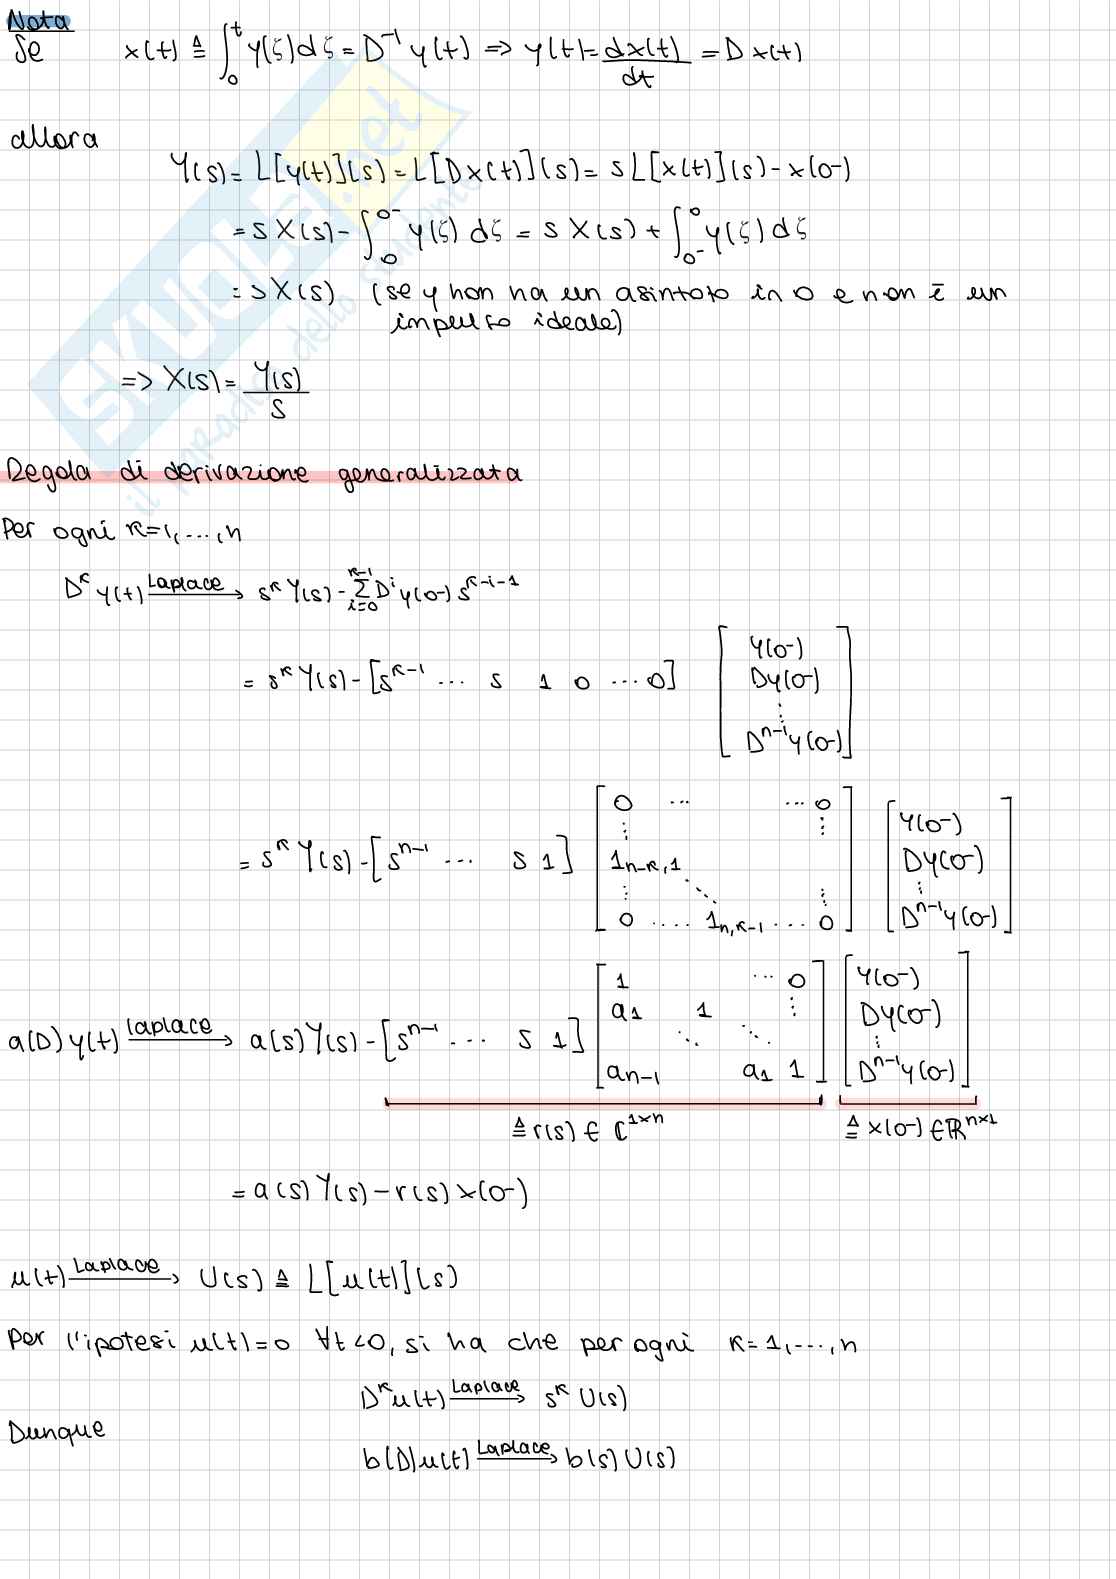 Nota
Se x(t) ≜ ∫₀ᵗ y(ζ)dζ = D⁻¹ y(t) => y(t) = dx(t)/dt = D x(t)
allora
Y(s) = L[y(t)](s) = L[Dx(t)](s) = sL[x(t)](s) - x(0-)
= s X(s) - ∫₀^{0-} y(ζ) dζ = s X(s) + ∫_{0-}^{0} y(ζ) dζ
= sX(s) (se y non ha un asintoto in 0 e non è un
impulso ideale)
=> X(s) = Y(s)/s
Regola di derivazione generalizzata
Per ogni k=1,...,n
Dᵏ y(t) Laplace → sᵏ Y(s) - Σ_{i=0}^{k-1} Dⁱ y(0-) s^{k-i-1}
= sᵏ Y(s) - [s^{k-1} ... s 1 0 ... 0] [y(0-) Dy(0-) ⋮ D^{n-1}y(0-)]
= sᵏ Y(s) - [s^{n-1} ... s 1] [0 ... ... 0 ⋮ ⋮ 1_{n-k,1} ⋱ ⋮ ⋮ 0 .... 1_{n,k-1} ... 0] [y(0-) Dy(0-) ⋮ D^{n-1}y(0-)]
a(D) y(t) Laplace → a(s)Y(s) - [s^{n-1} ... s 1] [1 ... 0 a₁ 1 ⋮ ⋱ ⋱ a_{n-1} a₁ 1] [y(0-) Dy(0-) ⋮ D^{n-1}y(0-)]
≜ r(s) ∈ ℂ^{1×n} ≜ x(0-) ∈ ℝ^{n×1}
= a(s) Y(s) - r(s) x(0-)
u(t) Laplace → U(s) ≜ L[u(t)](s)
Per l'ipotesi u(t)=0 ∀t<0, si ha che per ogni k=1,...,n
Dᵏu(t) Laplace → sᵏ U(s)
Dunque
b(D)u(t) Laplace → b(s)U(s)
SKUOLA.net
il paradiso dello studente